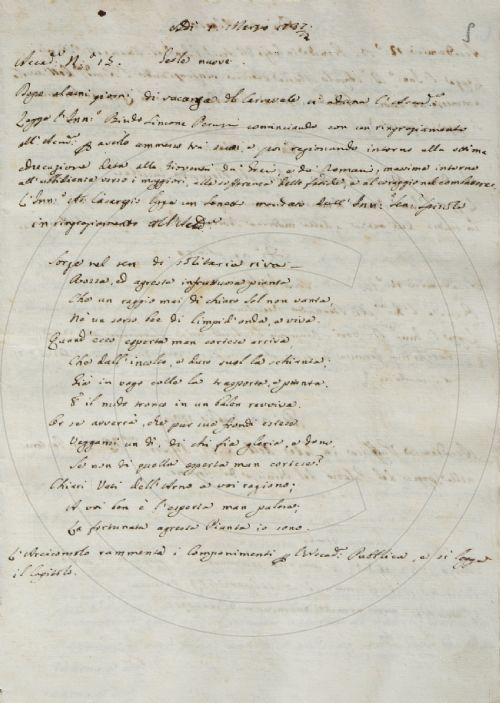 Adì 7 Marzo 1737/8
Accad.a N.o 13. Leste nuove.
Dopo alcuni giorni di vacanza del Carnevale si aduna l'Accad.a
Legge l'Inn.o Bindo Simone Peruzzi cominciando con un ringraziamento
all'Accad.a p averlo ammesso tra suoi, e poi ragionando intorno alla ottima
educazione data alla Gioventù da' Greci, e da' Romani, massime intorno
all'ubbidienza verso i maggiori, alla sofferenza delle fatiche, e al coraggio nel combattere
L'Inn.o Ab. Casaregi legge un sonetto mandato dall'Inn.o
in ringraziamento all'Accad.a
Sorge nel sen di solitaria riva
Rozza, ed agreste infruttuosa pianta,
Che un raggio mai di chiaro Sol non vanta,
Né un sorso bee di limpid'onda, e viva.
Quand'ecco esperta man cortese arriva
Che dall'incolto, e duro suol la schianta;
Poi in vago colle la trasporta, e pianta,
E il nudo tronco in un balen ravviva.
Or se avverrà, che pur sue frondi estese
Veggansi un dì, di chi fia gloria, e dono,
Se non di quella esperta man cortese?
Chiari Vati dell'Arno a voi ragiono;
A voi ben è l'esperta man palese;
La fortunata agreste Pianta io sono.
L'Arciconsolo rammenta i Componimenti p l'Accad.a Pubblica, e si legge
il Capitolo.